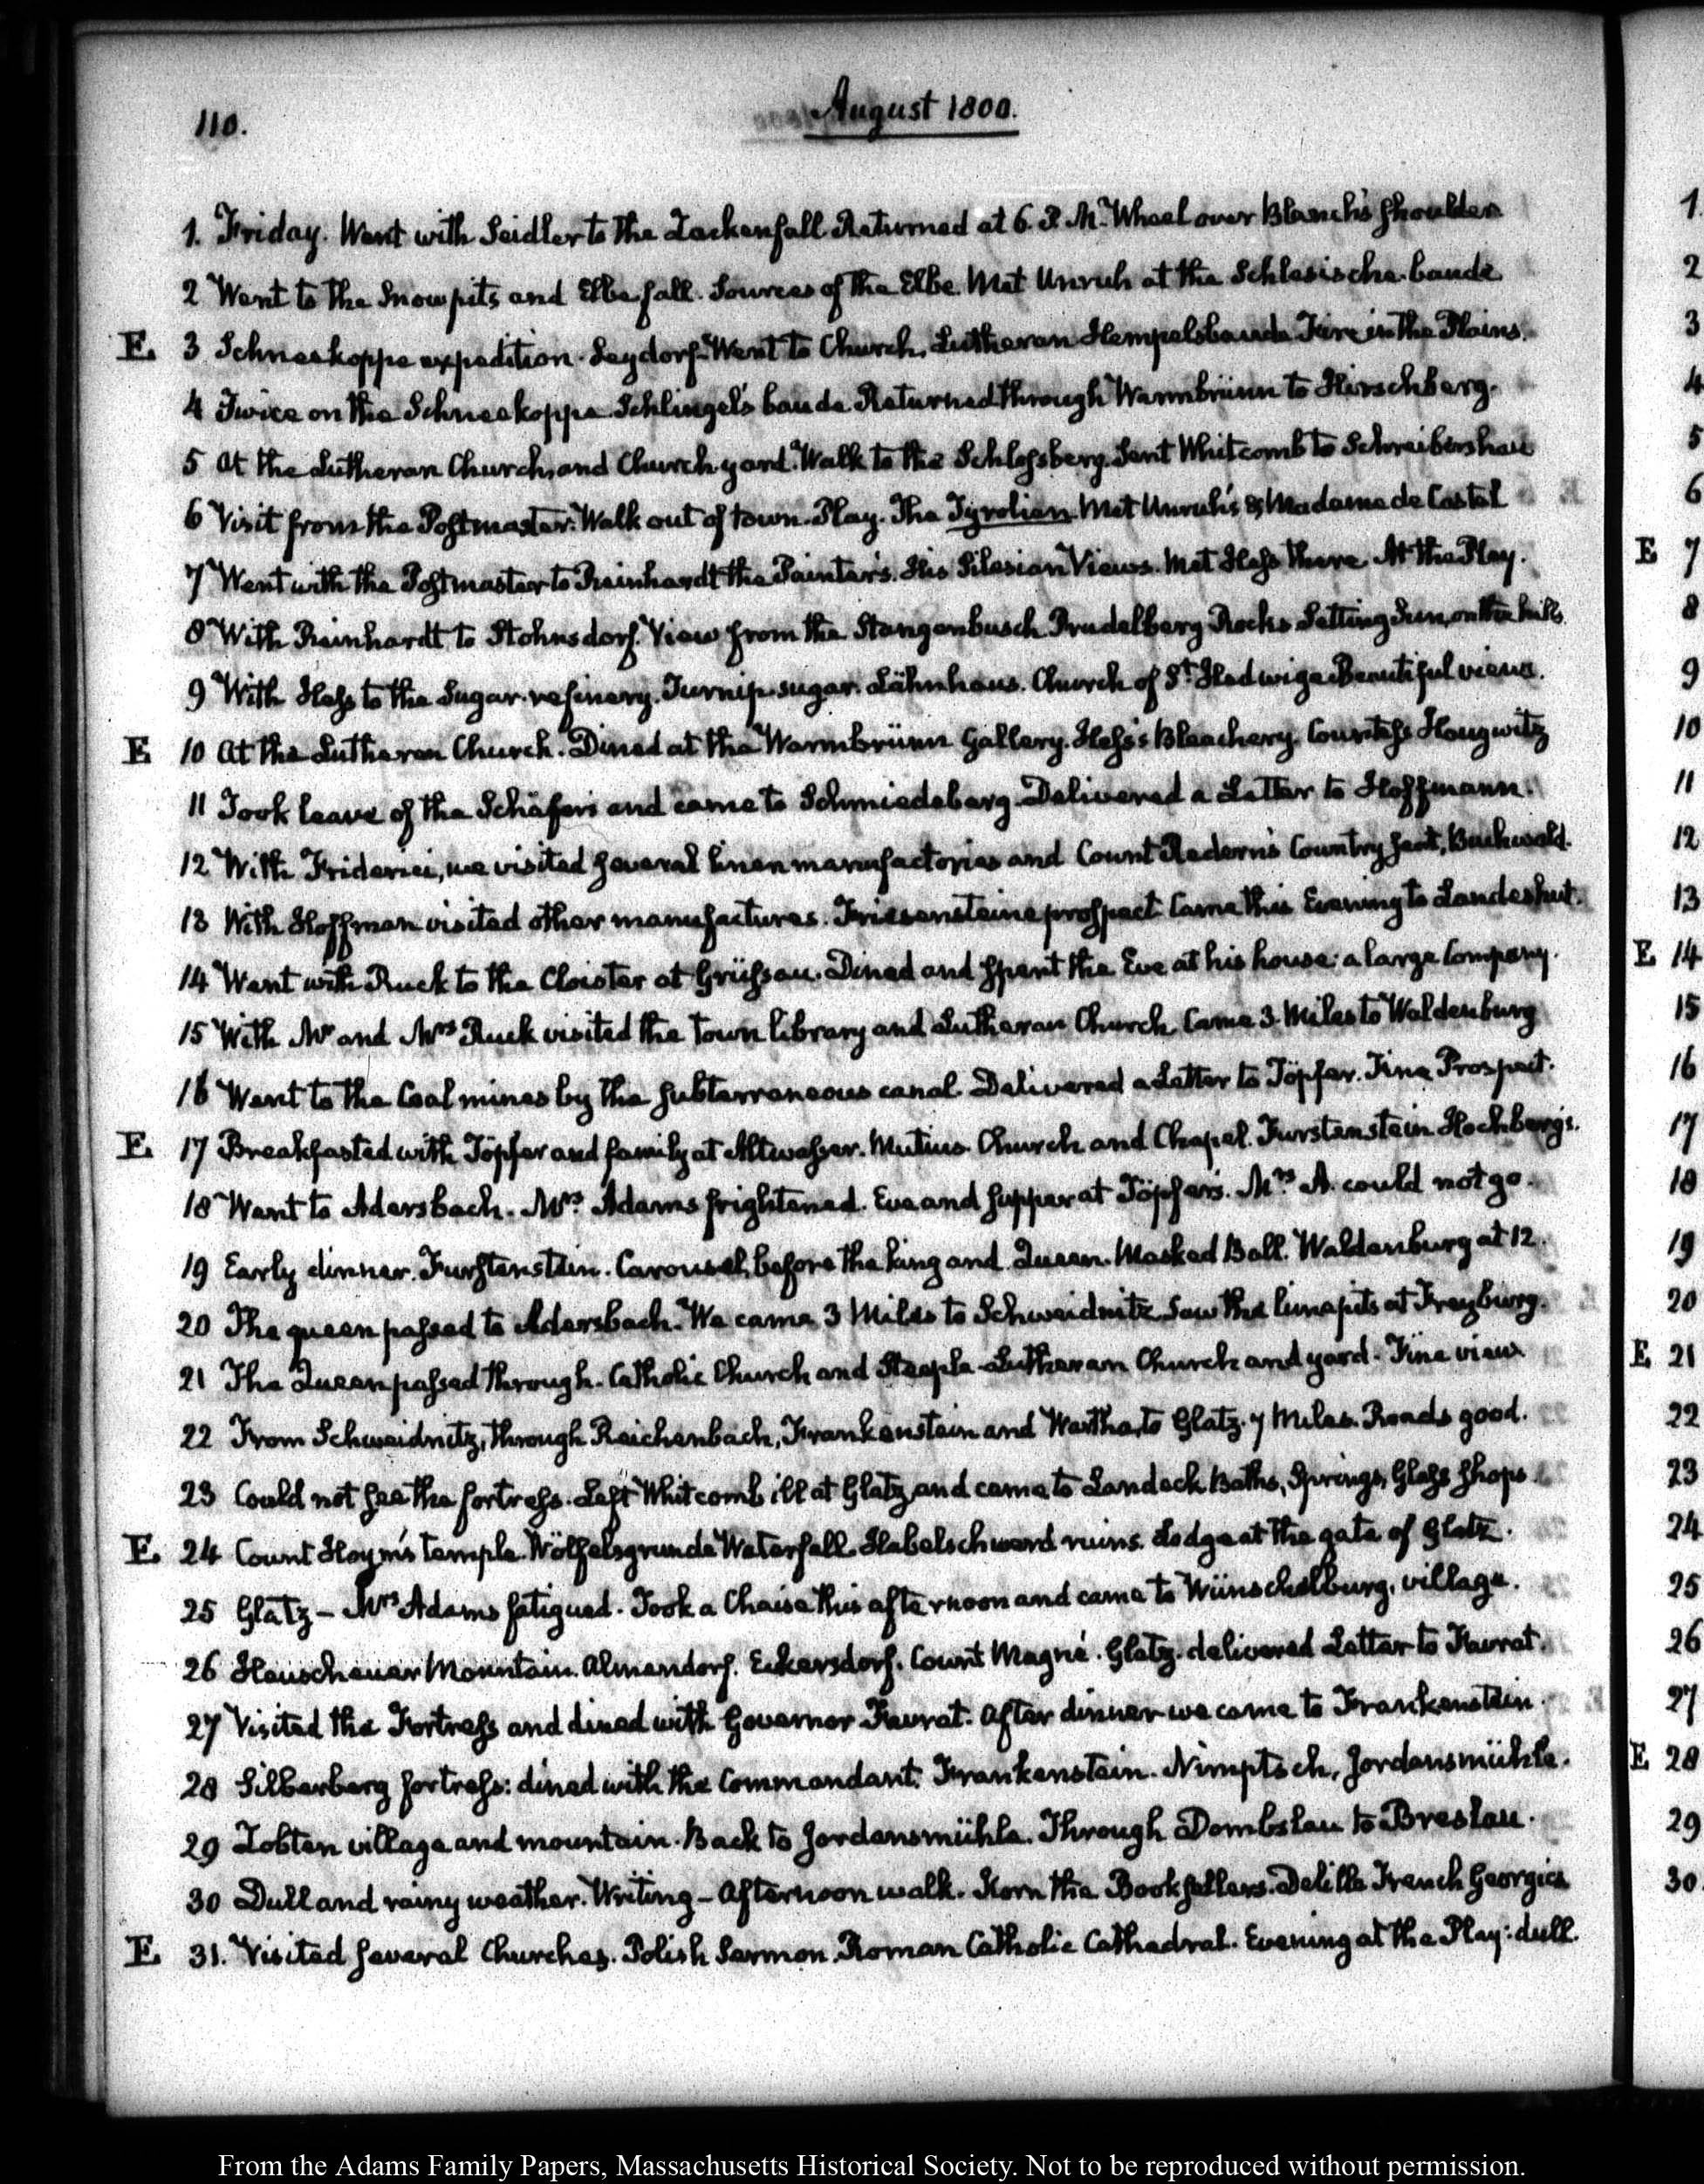 110.
August 1800.
1. Friday. Went with Seidler to the Zackenfall. Returned at 6. P. M. Wheel over Blanch's shoulder
2 Went to the Snowpits and Elbefall. Sources of the Elbe. Met Unruh at the Schlesische-baude
E. 3 Schneekoppe expedition. Seydorf. Went to Church, Lutheran Hempelsbaude Fire in the Plains.
4 Twice on the Schneekoppe Schlingel's baude. Returned through Warmbrünn to Hirschberg.
5 At the Lutheran Church, and Church-yard. Walk to the Schlossberg. Sent Whitcomb to Schreibershau
6 Visit from the Postmaster. Walk out of town. Play. The Tyrolien. Met Unruh's & Madame de Castel
7 Went with the Postmaster to Reinhardt the Painter's. His Silesian Views. Met Hess there. At the Play.
8 With Reinhardt to Stohnsdorf. View from the Stangenbusch. Prudelberg Rocks. Setting Sun, on the hills
9 With Hess to the Sugar-refinery. Turnip-sugar. Lähnhaus. Church of St. Hedwige. Beautiful views.
E 10 At the Lutheran Church. Dined at the Warmbrünn Gallery. Hess's Bleachery. Countess Haugwitz
11 Took leave of the Schäfers and came to Schmiedeberg. Delivered a Letter to Hoffmann.
12 With Friderici, we visited several linen manufactories and Count Redern's Country seat, Buchwald.
13 With Hoffman visited other manufactures. Friesensteine prospect. Came this Evening to Landeshut.
14 Went with Ruck to the Cloister at Grüssau. Dined and spent the Eve at his house: a large Company.
15 With Mr and Mrs Ruck visited the town library and Lutheran Church. Came 3 Miles to Waldenburg
16 Went to the Coal mines by the subterraneous canal. Delivered a Letter to Töpfer. Fine Prospect.
E. 17 Breakfasted with Töpfer and family at Altwasser. Mutius. Church and Chapel. Furstenstein Hochberg's.
18 Went to Adersbach. Mrs. Adams frightened. Eve and supper at Töpfer's. Mrs. A. could not go.
19 Early dinner. Furstenstein. Carousel before the king and Queen. Masked Ball. Waldenburg at 12.
20 The queen passed to Adersbach. We came 3 Miles to Schweidnitz. Saw the limepits at Freyburg.
21 The Queen passed through. Catholic Church and Steeple. Lutheran Church and yard. Fine view
22 From Schweidnitz, through Reichenbach, Frankenstein and Wartha, to Glatz. 7 Miles. Roads good.
23 Could not see the fortress. Left Whitcomb ill at Glatz, and came to Landeck Baths, Springs, Glass shops.
E. 24 Count Hoym's temple. Wölfelsgrunde Waterfall. Habelschwerd ruins. Lodge at the gate of Glatz.
25 Glatz - Mrs Adams fatigued. Took a Chaise this afternoon and came to Wünschelburg, village.
26 Heuscheuer Mountain. Almendorf. Eckersdorf. Count Magné. Glatz. delivered Letter to Favrat.
27 Visited the Fortress and dined with Governor Favrat. After dinner we came to Frankenstein
28 Silberberg fortress: dined with the Commandant. Frankenstein. Nimptsch, Jordansmühle.
29 Zobten village and mountain. Back to Jordansmühle. Through Dombslau to Breslau.
30 Dull and rainy weather. Writing - Afternoon walk. Korn the Booksellers. Delille French Georgics
E. 31. Visited several Churches. Polish Sermon. Roman Catholic Cathedral. Evening at the Play: dull.
1
2
3
4
5
6
E 7
8
9
10
11
12
13
E 14
15
16
17
18
19
20
E 21
22
23
24
25
26
27
E 28
29
30
From the Adams Family Papers, Massachusetts Historical Society. Not to be reproduced without permission.